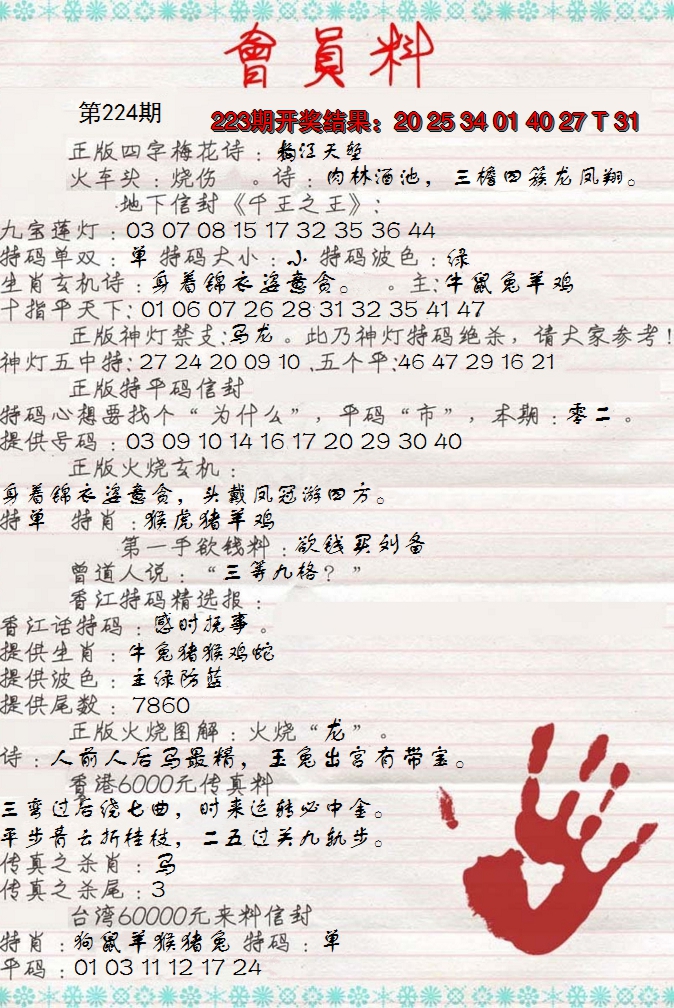 會員料
第224期
223期开奖结果：20 25 34 01 40 27 T 31
正版四字梅花诗：江天堑
火车头：烧伤 。诗：肉林酒池，三檐四簇龙凤翔。
地下信封《千王之王》：
九宝莲灯：03 07 08 15 17 32 35 36 44
特码单双：单 特码大小：小 特码波色：绿
生肖玄机诗：身着锦衣恣意贪。 。主：牛鼠兔羊鸡
十指平天下：01 06 07 26 28 31 32 35 41 47
正版神灯禁支：马龙。此乃神灯特码绝杀，请大家参考！
神灯五中特：27 24 20 09 10 .五个平：46 47 29 16 21
正版特平码信封
特码心想要找个“为什么”，平码“市”，本期：零二。
提供号码：03 09 10 14 16 17 20 29 30 40
正版火烧玄机：
身着锦衣恣意贪，头戴凤冠游四方。
特单 特肖：猴虎猪羊鸡
第一手欲钱料：欲钱买刘备
曾道人说：“三等九格？”
香江特码精选报：
香江话特码：感时抚事。
提供生肖：牛兔猪猴鸡蛇
提供波色：主绿防蓝
提供尾数：7860
正版火烧图解：火烧“龙”。
诗：人前人后马最精，玉兔出宫有带宝。
香港6000元传真料
三弯过后绕七曲，时来运转必中金。
平步青云折桂枝，二五过关九轨步。
传真之杀肖：马
传真之杀尾：3
台湾60000元来料信封
特肖：狗鼠羊猴猪兔 特码：单
平码：01 03 11 12 17 24